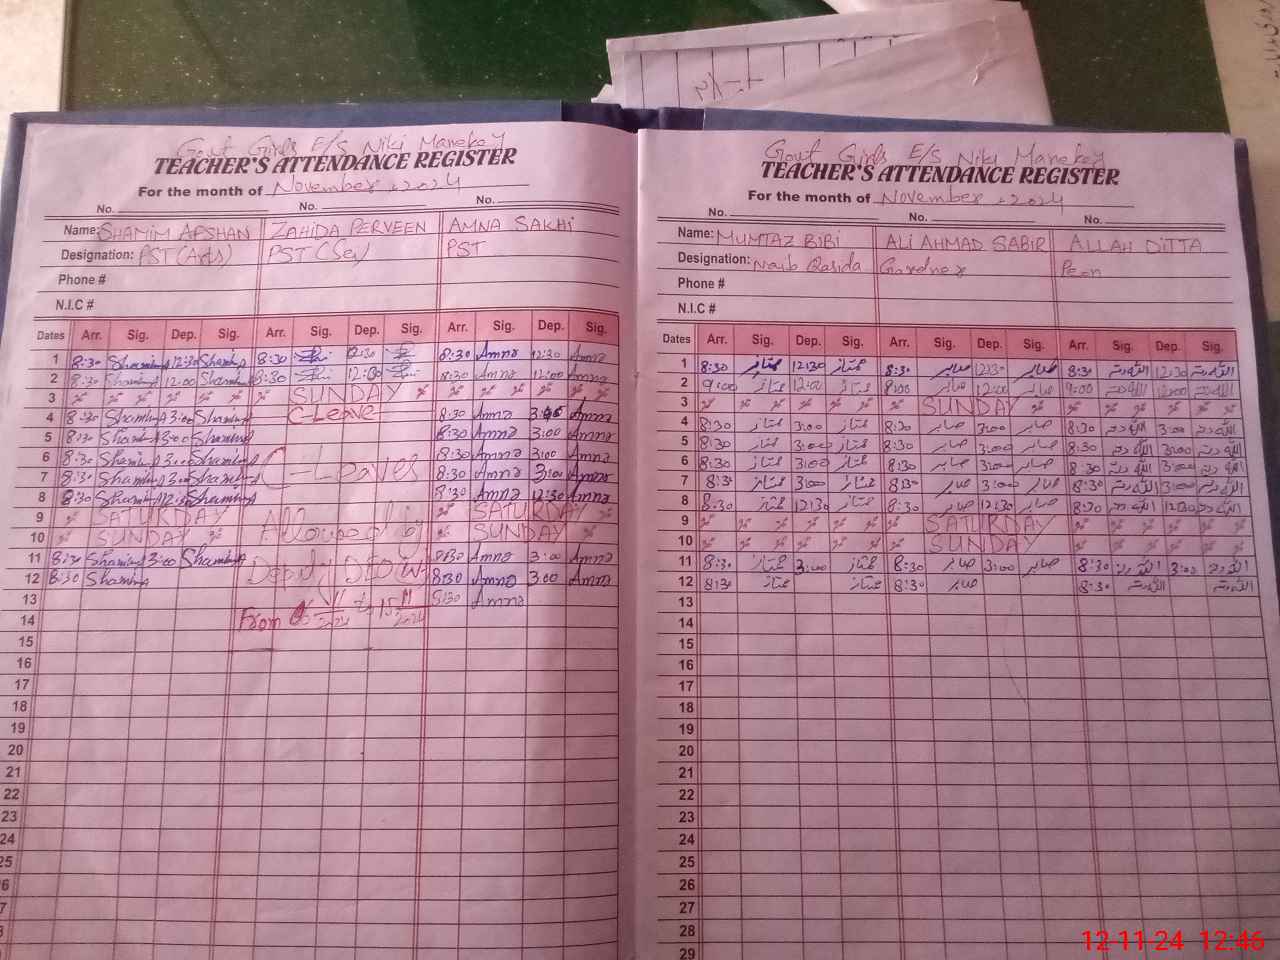 Govt Girls E/S Niki Manekey
TEACHER'S ATTENDANCE REGISTER
For the month of November, 2024
No. No. No.
Name: SHAMIM AFSHAN ZAHIDA PERVEEN AMNA SAKHI
Designation: PST (Arts) PST (Sci) PST
Phone #
N.I.C #
Dates Arr. Sig. Dep. Sig. Arr. Sig. Dep. Sig. Arr. Sig. Dep. Sig.
1 8:30 Shamim A 12:30 Shamim A 8:30 12:30 8:30 Amna 12:30 Amna
2 8:30 Shamim A 12:00 Shamim A 8:30 12:00 8:30 Amna 12:00 Amna
3 SUNDAY
4 8:30 Shamim A 3:00 Shamim A C-Leave 8:30 Amna Amna
5 8:30 Shamim A 3:00 Shamim A 8:30 Amna 3:00 Amna
6 8:30 Shamim A 3:00 Shamim A 8:30 Amna 3:00 Amna
7 8:30 Shamim A 3:00 Shamim A C-Leaves 8:30 Amna 3:00 Amna
8 8:30 Shamim A 12:30 Shamim A 8:30 Amna 12:30 Amna
9 SATURDAY SATURDAY
10 SUNDAY Allowed by SUNDAY
11 8:30 Shamim A 3:00 Shamim A 8:30 Amna 3:00 Amna
12 8:30 Shamim A Deputy DEO 8:30 Amna 3:00 Amna
13 8:30 Amna
14 From 11/2024 to 15/11/2024
15
16
17
18
19
20
21
22
23
24
25
Govt Girls E/S Niki Manekey
TEACHER'S ATTENDANCE REGISTER
For the month of November, 2024
No. No. No.
Name: MUMTAZ BIBI ALI AHMAD SABIR ALLAH DITTA
Designation: Naib Qasida Gardner Peon
Phone #
N.I.C #
Dates Arr. Sig. Dep. Sig. Arr. Sig. Dep. Sig. Arr. Sig. Dep. Sig.
1 8:30 ممتاز 12:30 ممتاز 8:30 صابر 12:30 صابر 8:30 اللہ دتہ 12:30 اللہ دتہ
2 9:00 ممتاز 12:00 ممتاز 8:00 صابر 12:00 صابر 9:00 اللہ دتہ 12:00 اللہ دتہ
3 SUNDAY
4 8:30 ممتاز 3:00 ممتاز 8:30 صابر 3:00 صابر 8:30 اللہ دتہ 3:00 اللہ دتہ
5 8:30 ممتاز 3:00 ممتاز 8:30 صابر 3:00 صابر 8:30 اللہ دتہ 3:00 اللہ دتہ
6 8:30 ممتاز 3:00 ممتاز 8:30 صابر 3:00 صابر 8:30 اللہ دتہ 3:00 اللہ دتہ
7 8:30 ممتاز 3:00 ممتاز 8:30 صابر 3:00 صابر 8:30 اللہ دتہ 3:00 اللہ دتہ
8 8:30 ممتاز 12:30 ممتاز 8:30 صابر 12:30 صابر 8:30 اللہ دتہ 12:30 اللہ دتہ
9 SATURDAY
10 SUNDAY
11 8:30 ممتاز 3:00 ممتاز 8:30 صابر 3:00 صابر 8:30 اللہ دتہ 3:00 اللہ دتہ
12 8:30 ممتاز ممتاز 8:30 صابر 8:30 اللہ دتہ اللہ دتہ
13
14
15
16
17
18
19
20
21
22
23
24
25
26
27
28
29
12-11-24 12:46